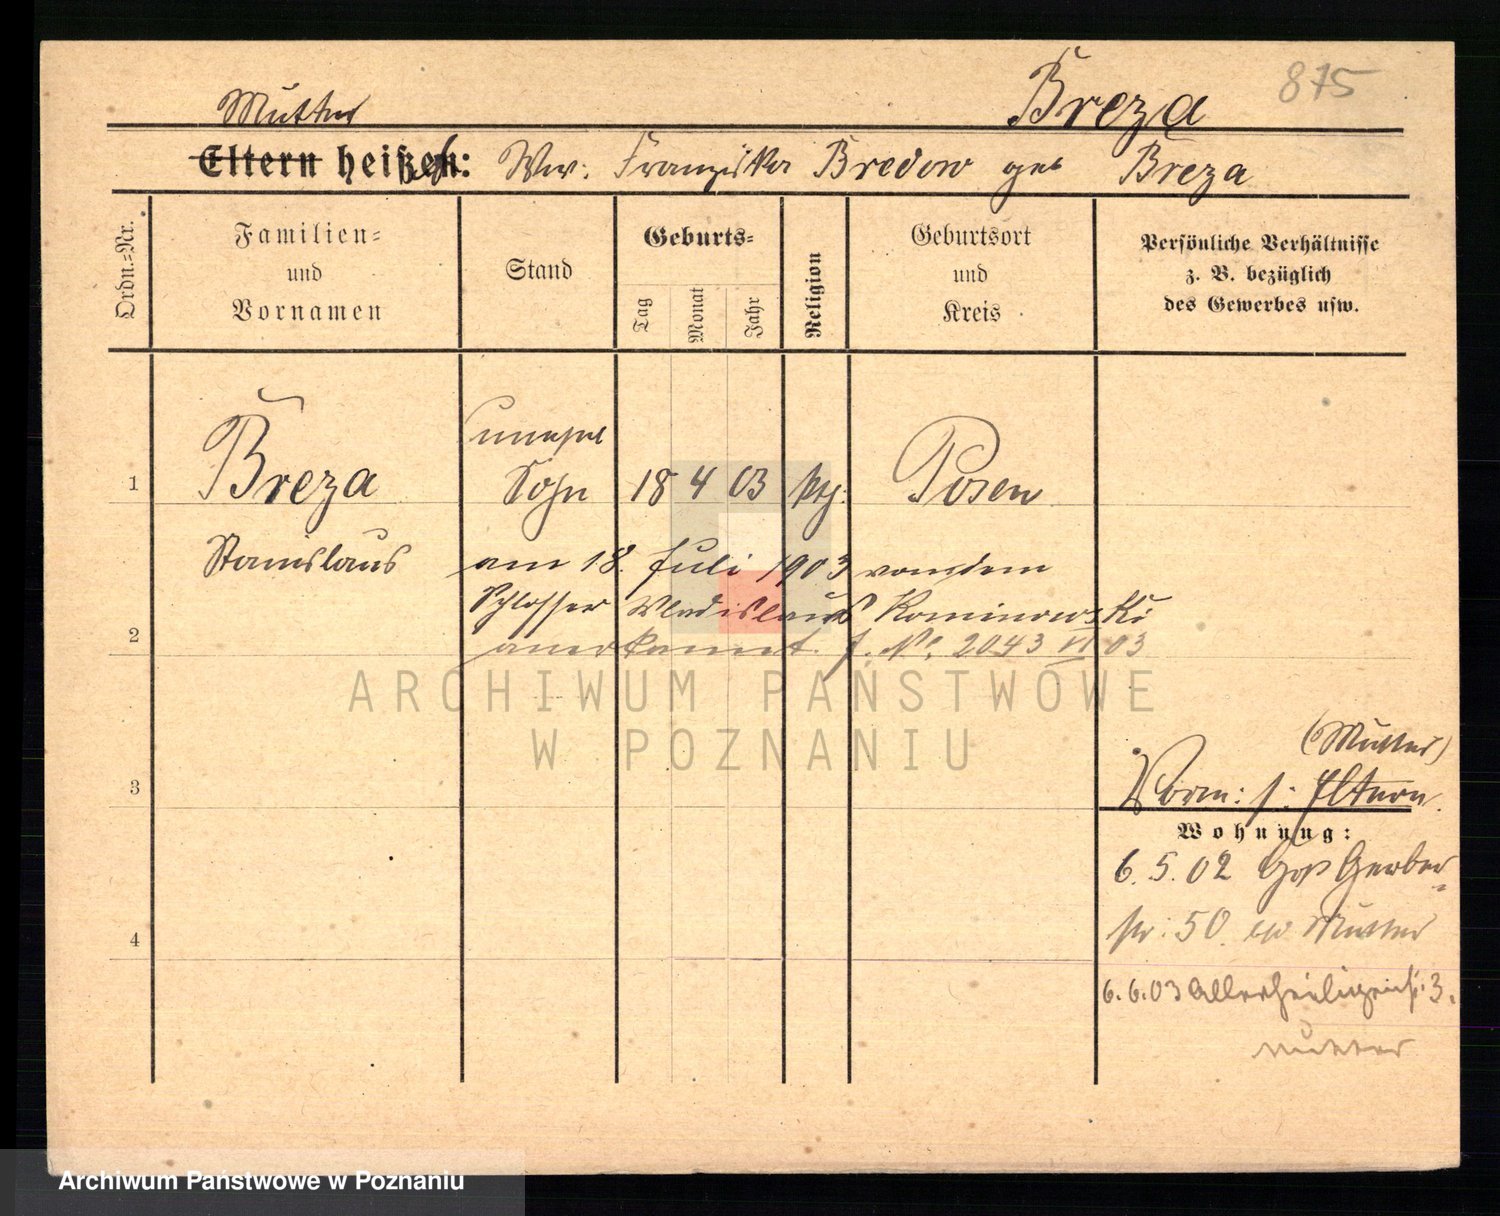 Breza 875
Mutter
Eltern heißen: Ww: Franziska Bredow geb Breza
Ordn.-Nr.
Familien-
und
Vornamen
Stand
Geburts-
Tag
Monat
Jahr
Religion
Geburtsort
und
Kreis
Persönliche Verhältnisse
z. B. bezüglich
des Gewerbes usw.
unehel
1 Breza Sohn 18 4 03 kth: Posen
Stanislaus am 18. Juli 1903 von dem
Schlosser Wladislaus Kominowski
2 anerkannt. J. No. 2043 VI 03
ARCHIWUM PAŃSTWOWE
W POZNANIU
(Mutter)
3 Vorm: s: Eltern.
Wohnung:
6.5.02 Groß Gerber-
4 str: 50. Mutter
6.6.03 Allerheiligenst: 3.
Mutter
Archiwum Państwowe w Poznaniu